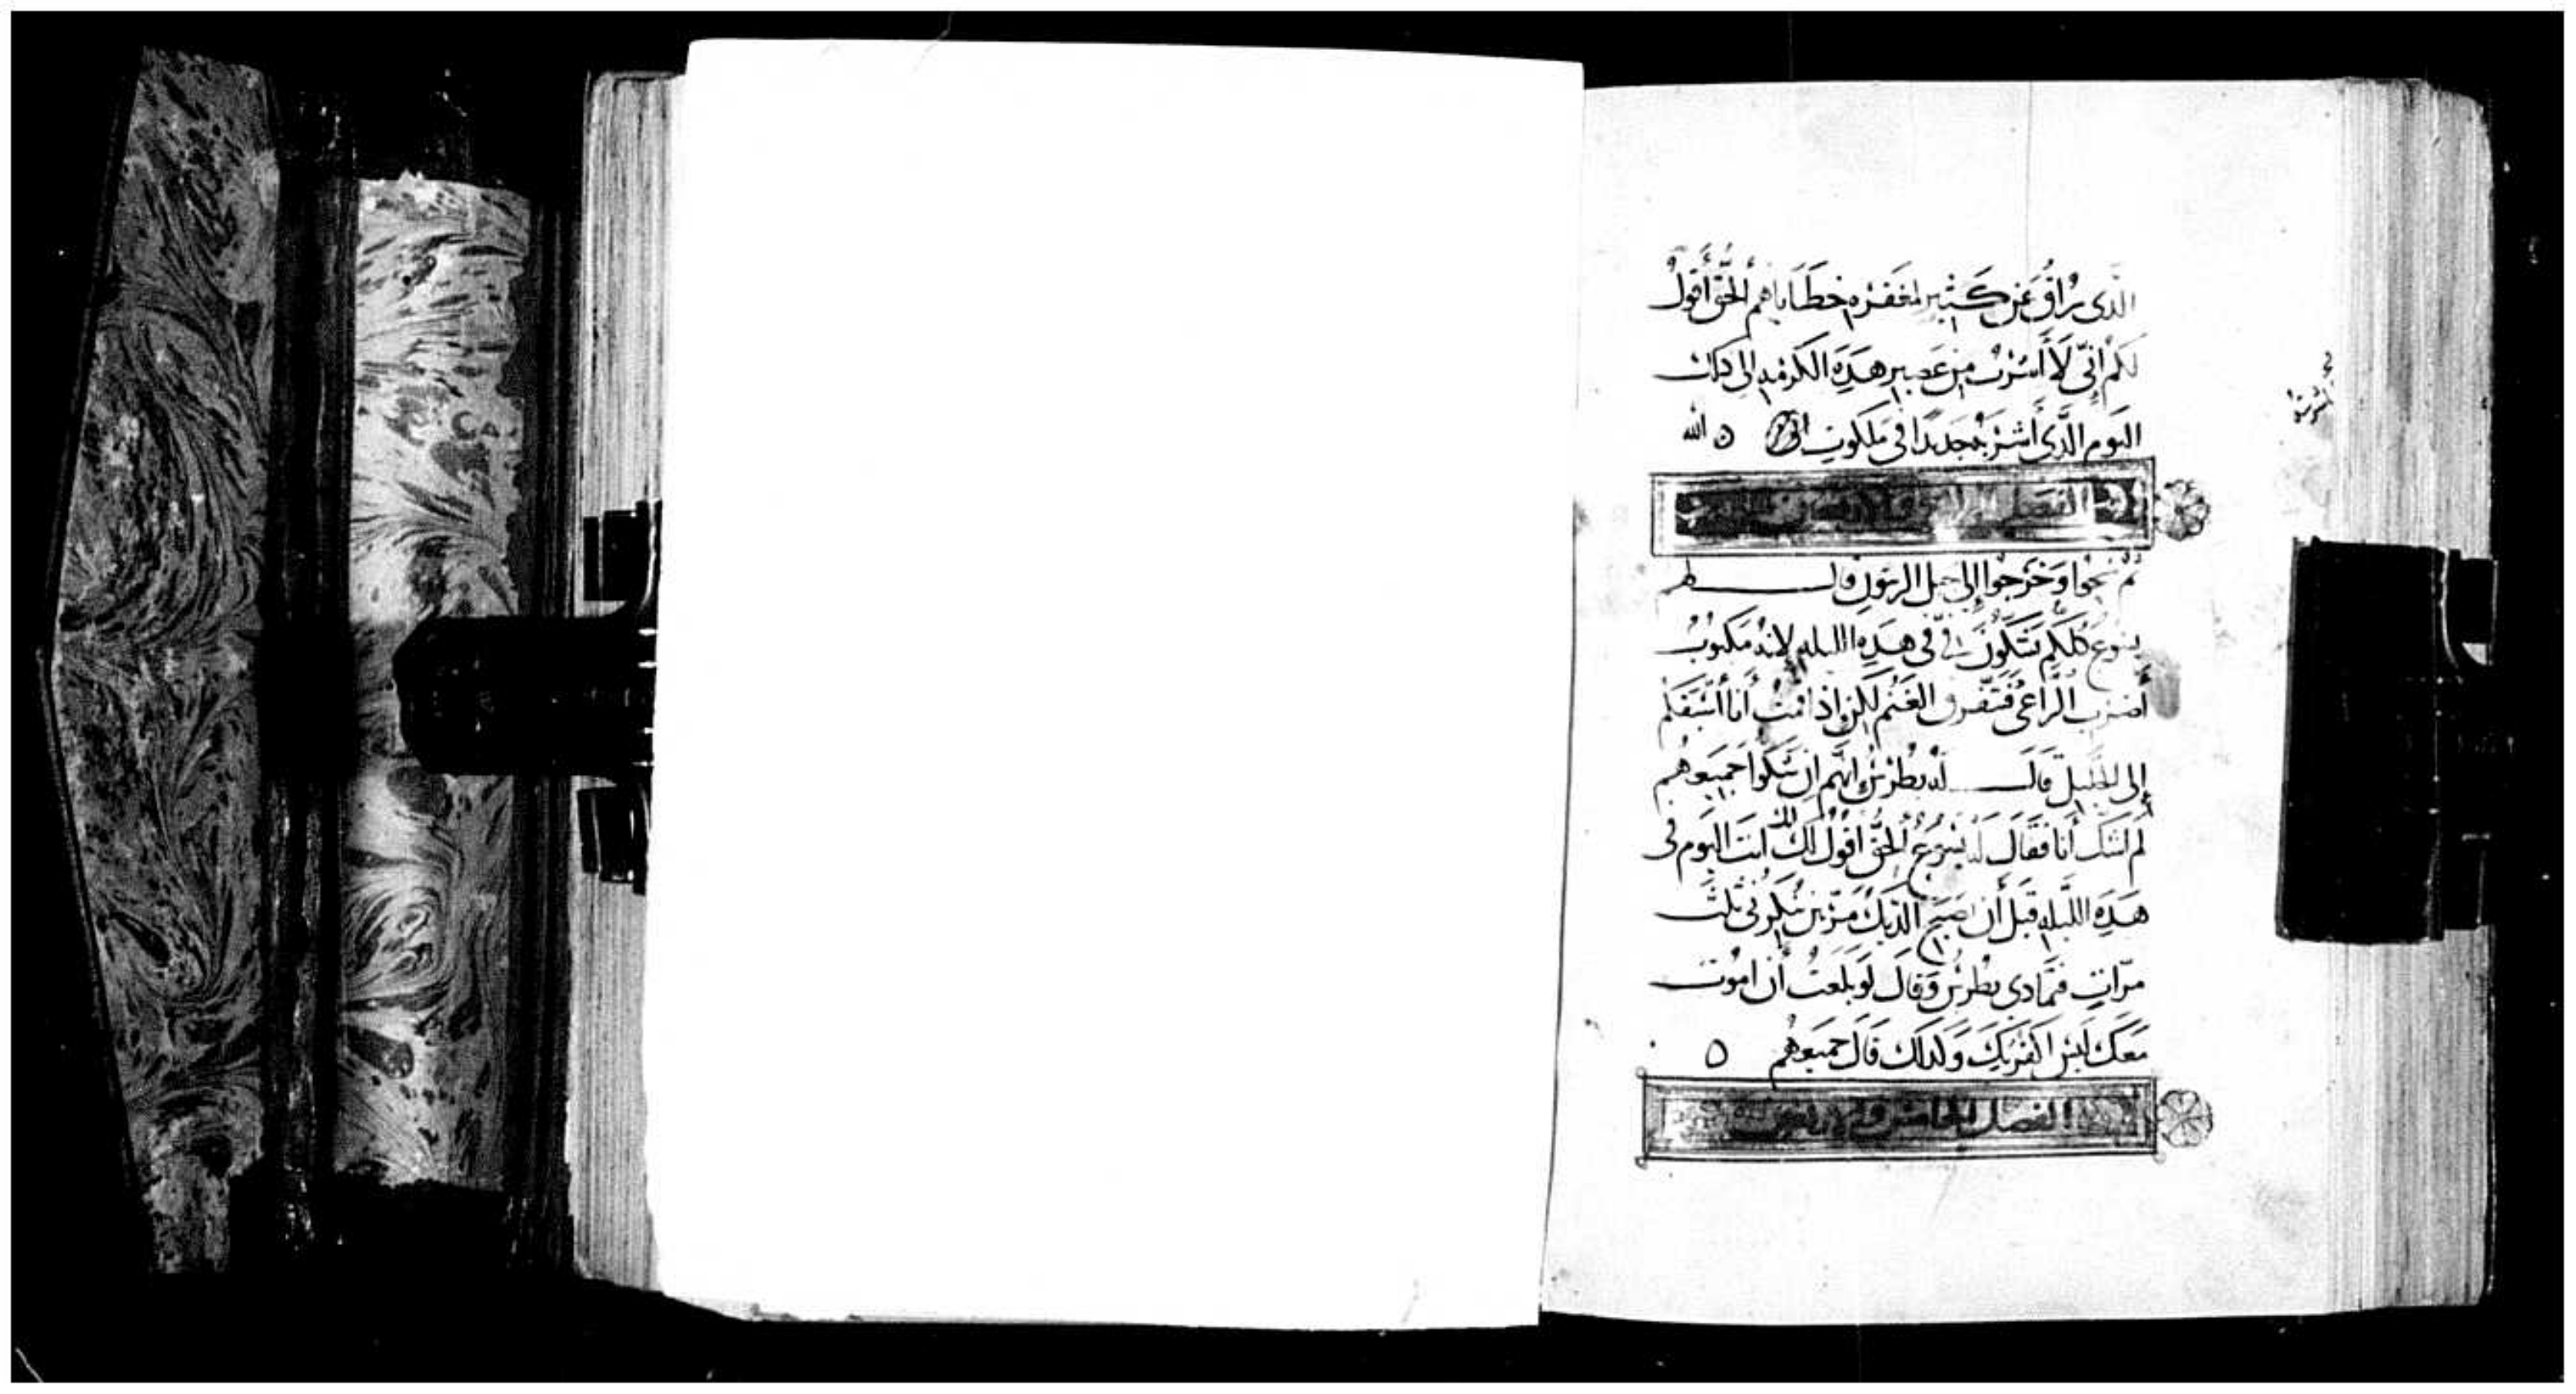 الذى يراق عن كثير لمغفرة خطاياهم الحق أقول
لكم إنى لا أشرب من عصير هذه الكرمة إلى ذلك
اليوم الذى أشربه جديدا فى ملكوت الله
الفصل الرابع والاربعون
ثم سبحوا وخرجوا إلى جبل الزيتون قال لهم
يسوع كلكم تشكون فى فى هذه الليلة لانه مكتوب
أضرب الراعى فتفرق الغنم لكن إذا قمت أنا أسبقكم
إلى الجليل قال له بطرس انهم ان شكوا جميعهم
لم اشك أنا فقال له يسوع الحق اقول لك انك انت اليوم فى
هذه الليلة قبل أن يصيح الديك مرتين تنكرنى ثلث
مرات فتمادى بطرس وقال لو بلغت أن اموت
معك ليس اكفر بك وكذلك قال جميعهم
الفصل الخامس والاربعون